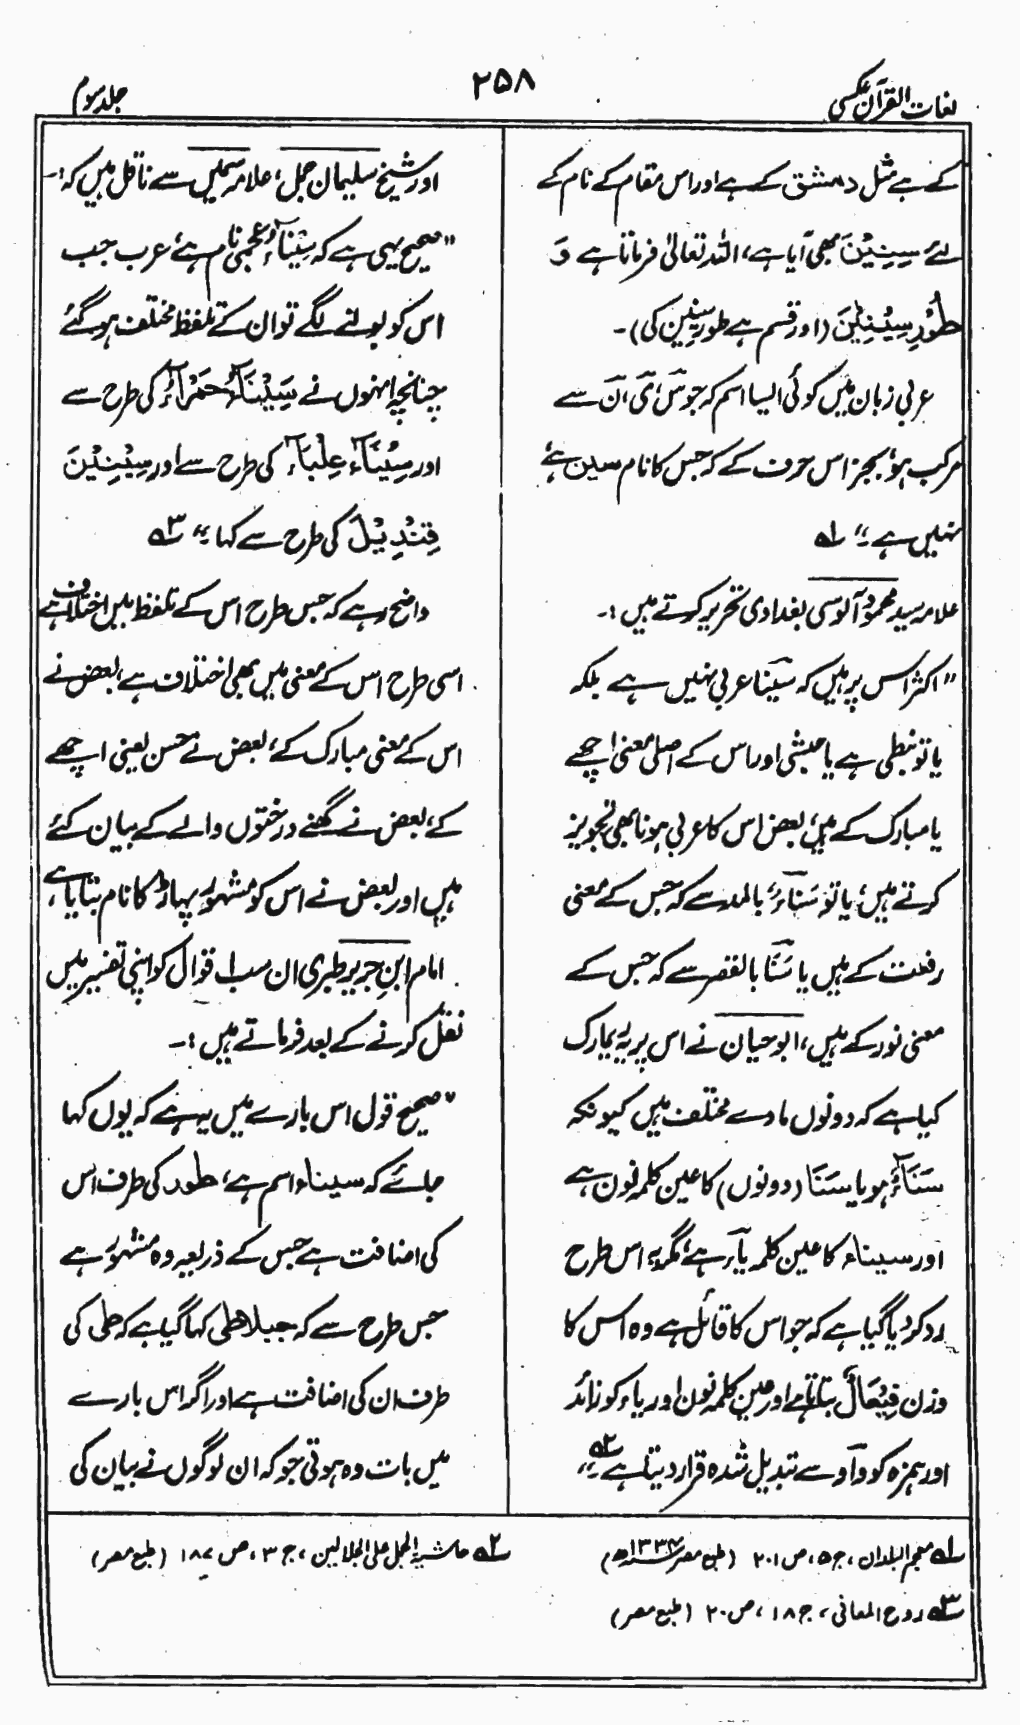 لغات القرآن عکسی
۲۵۸
جلد سوم
کے ہے مثل دمشق کے ہے اور اس مقام کے نام کے
لئے سِیْنِیْنَ بھی آیا ہے، اللہ تعالیٰ فرماتا ہے وَ
طُوْرِ سِیْنِیْنَ (اور قسم ہے طور سینین کی)۔
عربی زبان میں کوئی ایسا اسم کہ جو س، ی، ن سے
مرکب ہو، بجز اس حرف کے کہ جس کا نام سین ہے
نہیں ہے۔“ ۱؎
علامہ سید محمود آلوسی بغدادی تحریر کرتے ہیں:۔
”اکثر اس پر ہیں کہ سینا عربی نہیں ہے بلکہ
یا تو نبطی ہے یا حبشی اور اس کے اصلی معنی اچھے
یا مبارک کے ہیں، بعض اس کا عربی ہونا بھی تجویز
کرتے ہیں، یا تو سَنَآءٌ، بالمد سے کہ جس کے معنی
رفعت کے ہیں یا سَنًا بالقصر سے کہ جس کے
معنی نور کے ہیں، ابو حیان نے اس پر یہ ریمارک
کیا ہے کہ دونوں مادے مختلف ہیں کیونکہ
سَنَآءٌ ہو یا سَنَا (دونوں) کا عین کلمہ نون ہے
اور سیناء کا عین کلمہ یاء ہے، مگر یہ اس طرح
رد کر دیا گیا ہے کہ جو اس کا قائل ہے وہ اس کا
وزن فِیْعَالٌ بتاتا ہے اور عین کلمہ نون اور یاء کو زائد
اور ہمزہ کو واو سے تبدیل شدہ قرار دیتا ہے۔“ ۲؎
اور شیخ سلیمان جمل، علامہ سمین سے ناقل ہیں کہ:۔
”صحیح یہی ہے کہ سِیْنَآءُ عجمی نام ہے، عرب جب
اس کو بولنے لگے تو ان کے تلفظ مختلف ہو گئے
چنانچہ انہوں نے سَیْنَآءُ حَمْرَآءُ کی طرح سے
اور سِیْنَآء عِلْبَآءٌ کی طرح سے اور سِیْنِیْنَ
قِنْدِیْلَ کی طرح سے کہا۔“ ۳؎
واضح رہے کہ جس طرح اس کے تلفظ میں اختلاف ہے
اسی طرح اس کے معنی میں بھی اختلاف ہے، بعض نے
اس کے معنی مبارک کے، بعض نے حسن یعنی اچھے
کے، بعض نے گھنے درختوں والے کے بیان کئے
ہیں اور بعض نے اس کو مشہور پہاڑ کا نام بتایا ہے،
امام ابن جریر طبری ان سب اقوال کو اپنی تفسیر میں
نقل کرنے کے بعد فرماتے ہیں:۔
”صحیح قول اس بارے میں یہ ہے کہ یوں کہا
جائے کہ سیناء اسم ہے، طور کی طرف اس
کی اضافت ہے جس کے ذریعہ وہ مشہور ہے
جس طرح سے کہ جبلا طی کہا گیا ہے کہ طی کی
طرف ان کی اضافت ہے اور اگر اس بارے
میں بات وہ ہوتی جو کہ ان لوگوں نے بیان کی
۱؎ معجم البلدان، ج ۵، ص ۲۰۱ (طبع مصر ۱۳۲۴ھ)
۲؎ حاشیۃ الجمل علی الجلالین، ج ۳، ص ۱۸۷ (طبع مصر)
۳؎ روح المعانی، ج ۱۸، ص ۲۰ (طبع مصر)